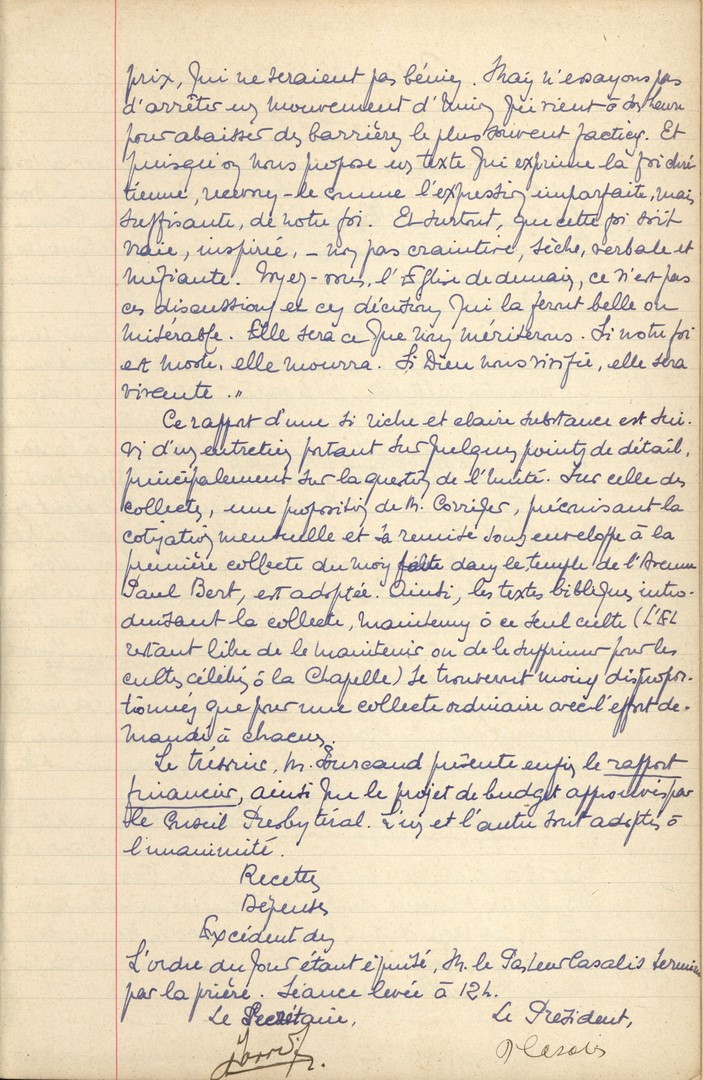 prix, qui ne seraient pas bénies. Mais n'essayons pas
d'arrêter un mouvement d'Union qui vient à son heure
pour abaisser des barrières le plus souvent factices. Et
puisqu'on nous propose un texte qui exprime la foi chré-
tienne, recevons-le comme l'expression imparfaite, mais
suffisante, de notre foi. Et surtout, que cette foi soit
vraie, inspirée, - non pas craintive, sèche, verbale et
méfiante. Voyez-vous, l'Eglise de demain, ce n'est pas
ces discussions et ces décisions qui la feront belle ou
misérable. Elle sera ce que nous mériterons. Si notre foi
est morte, elle mourra. Si Dieu nous vivifie, elle sera
vivante."
Ce rapport d'une si riche et claire substance est sui-
vi d'un entretien portant sur quelques points de détail,
principalement sur la question de l'Unité. Sur celle des
collectes, une proposition de M. Corriger, préconisant la
cotisation mensuelle et sa remise sous enveloppe à la
première collecte du mois faite dans le temple de l'Avenue
Paul Bert, est adoptée. Ainsi, les textes bibliques intro-
duisant la collecte, maintenus à ce seul culte (L'EL
restant libre de le maintenir ou de le supprimer pour les
cultes célébrés à la Chapelle) se trouveront moins dispropor-
tionnés que pour une collecte ordinaire avec l'effort de-
mandé à chacun.
Le trésorier, M. Fourcaud présente enfin le rapport
financier, ainsi que le projet de budget approuvés par
le Conseil Presbytéral. L'un et l'autre sont adoptés à
l'unanimité.
Recettes
Dépenses
Excédent des
L'ordre du jour étant épuisé, M. le Pasteur Casalis termine
par la prière. Séance levée à 12h.
Le Secrétaire, Le Président,
Casalis